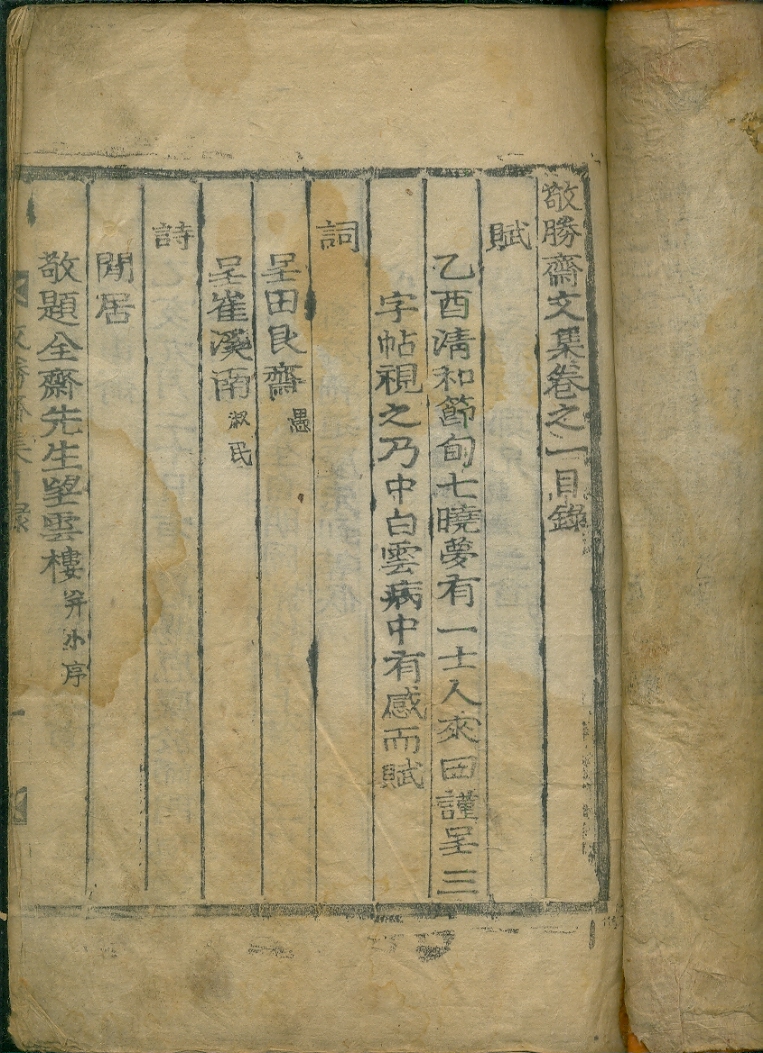 敬勝齋文集卷之一目錄
賦
乙酉淸和節旬七曉夢有一士人來曰謹呈三
字帖視之乃中白雲病中有感而賦
詞
呈田艮齋 愚
呈崔溪南 淑民
詩
閒居
敬題全齋先生望雲樓 并小序
敬勝齋集 目錄 一